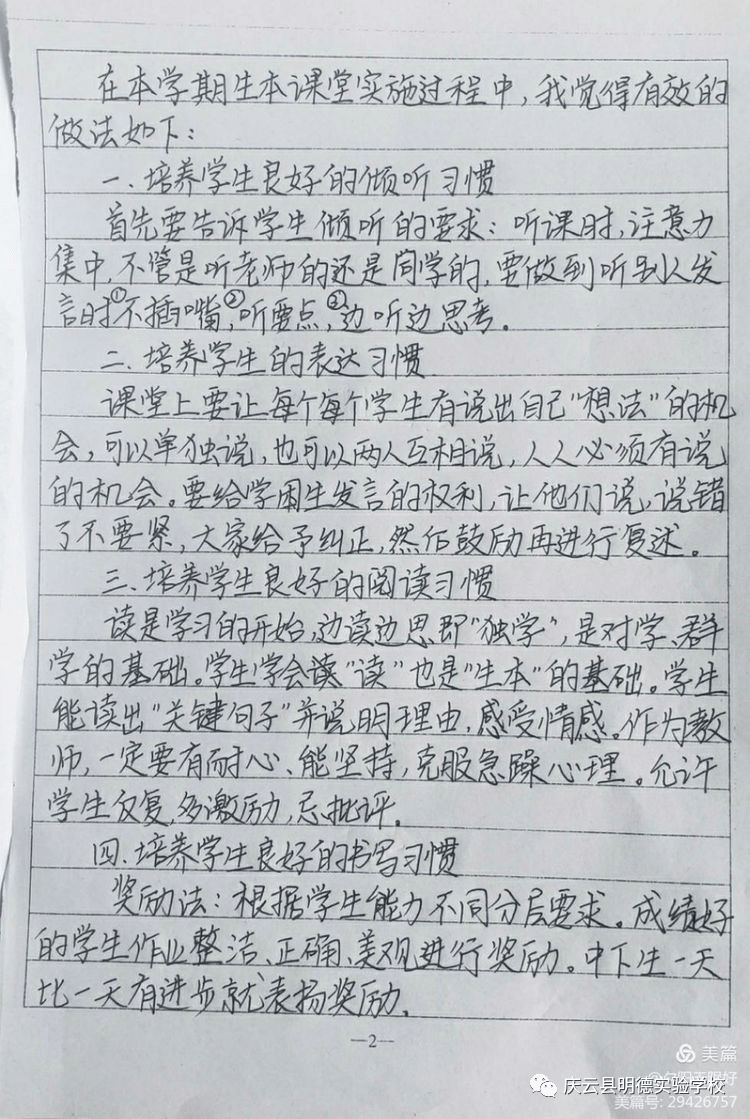 在本学期生本课堂实施过程中，我觉得有效的
做法如下：
一.培养学生良好的倾听习惯
首先要告诉学生倾听的要求：听课时，注意力
集中，不管是听老师的还是同学的，要做到听别人发
言时①不插嘴，②听要点，③边听边思考。
二.培养学生的表达习惯
课堂上要让每个每个学生有说出自己"想法"的机
会，可以单独说，也可以两人互相说，人人必须有说
的机会。要给学困生发言的权利，让他们说，说错
了不要紧，大家给予纠正，然后鼓励再进行复述。
三.培养学生良好的阅读习惯
读是学习的开始，边读边思即"独学"，是对学、群
学的基础。学生学会读"读"也是"生本"的基础。学生
能读出"关键句子"并说明理由，感受情感。作为教
师，一定要有耐心、能坚持，克服急躁心理。允许
学生反复，多激励，忌批评。
四.培养学生良好的书写习惯
奖励法：根据学生能力不同分层要求。成绩好
的学生作业整洁、正确、美观进行奖励。中下生一天
比一天有进步就表扬奖励。
—2—
美篇
夕阳无限好
庆云县明德实验学校
美篇号: 29426757